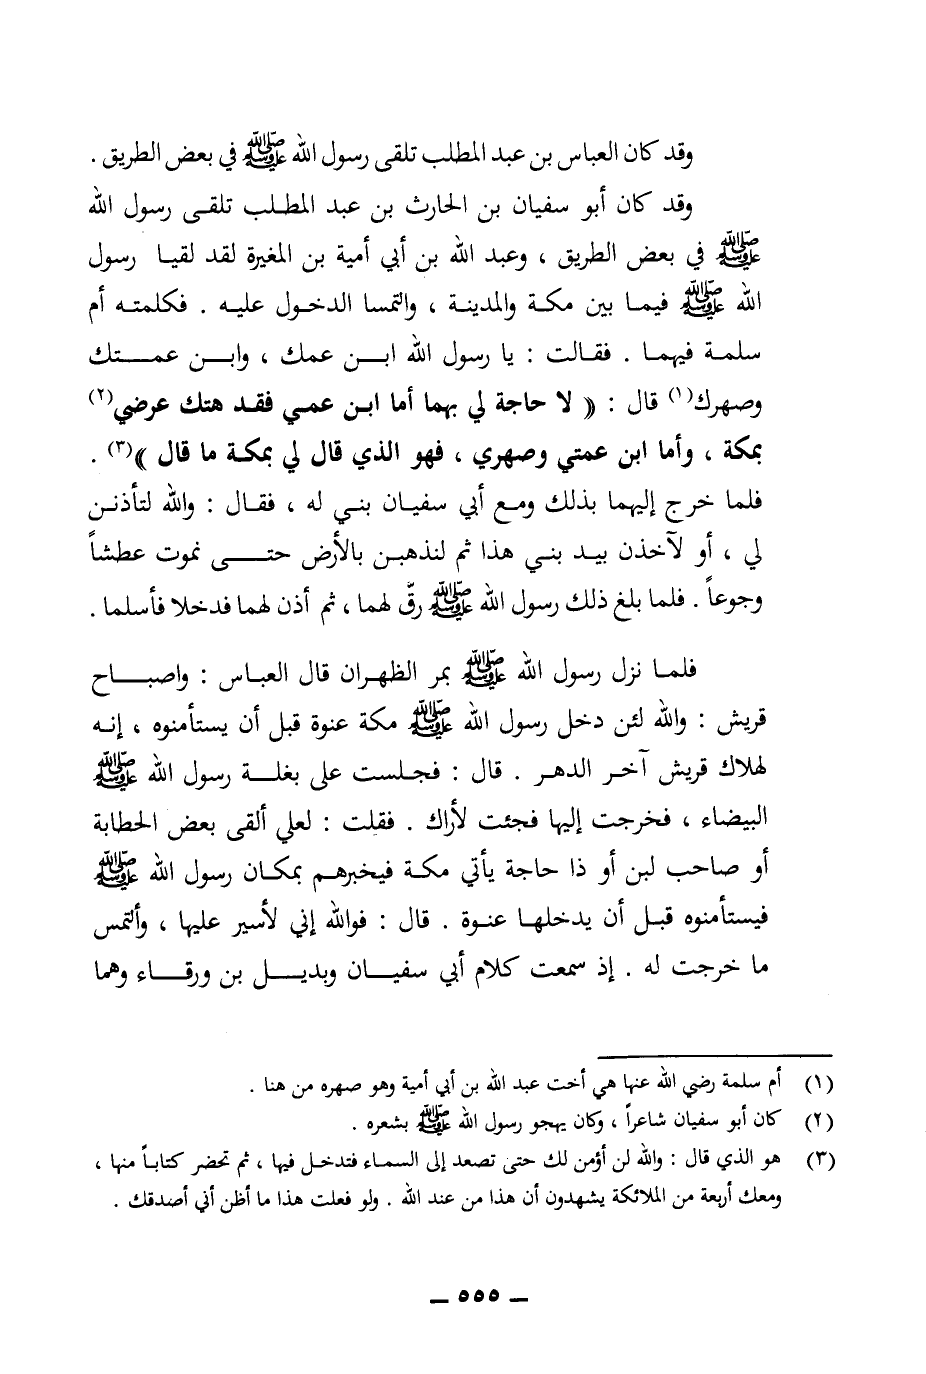 وقد كان العباس بن عبد المطلب تلقى رسول الله ﷺ في بعض الطريق .
وقد كان أبو سفيان بن الحارث بن عبد المطلب تلقى رسول الله
ﷺ في بعض الطريق ، وعبد الله بن أبي أمية بن المغيرة لقد لقيا رسول
الله ﷺ فيما بين مكة والمدينة ، والتمسا الدخول عليه . فكلمته أم
سلمة فيهما . فقالت : يا رسول الله ابن عمك ، وابن عمتك
وصهرك(١) قال : ﴿ لا حاجة لي بهما أما ابن عمي فقد هتك عرضي(٢)
بمكة ، وأما ابن عمتي وصهري ، فهو الذي قال لي بمكة ما قال ﴾(٣) .
فلما خرج إليهما بذلك ومع أبي سفيان بني له ، فقال : والله لتأذنن
لي ، أو لآخذن بيد بني هذا ثم لنذهبن بالأرض حتى نموت عطشاً
وجوعاً . فلما بلغ ذلك رسول الله ﷺ رقّ لهما ، ثم أذن لهما فدخلا فأسلما .
فلما نزل رسول الله ﷺ بمر الظهران قال العباس : واصباح
قريش : والله لئن دخل رسول الله ﷺ مكة عنوة قبل أن يستأمنوه ، إنه
لهلاك قريش آخر الدهر . قال : فجلست على بغلة رسول الله ﷺ
البيضاء ، فخرجت إليها فجئت لأراك . فقلت : لعلي ألقى بعض الحطابة
أو صاحب لبن أو ذا حاجة يأتي مكة فيخبرهم بمكان رسول الله ﷺ
فيستأمنوه قبل أن يدخلها عنوة . قال : فوالله إني لأسير عليها ، وألتمس
ما خرجت له . إذ سمعت كلام أبي سفيان وبديل بن ورقاء وهما
(١) أم سلمة رضي الله عنها هي أخت عبد الله بن أبي أمية وهو صهره من هنا .
(٢) كان أبو سفيان شاعراً ، وكان يهجو رسول الله ﷺ بشعره .
(٣) هو الذي قال : والله لن أؤمن لك حتى تصعد إلى السماء فتدخل فيها ، ثم تحضر كتاباً منها ،
ومعك أربعة من الملائكة يشهدون أن هذا من عند الله . ولو فعلت هذا ما أظن أني أصدقك .
— ٥٥٥ —